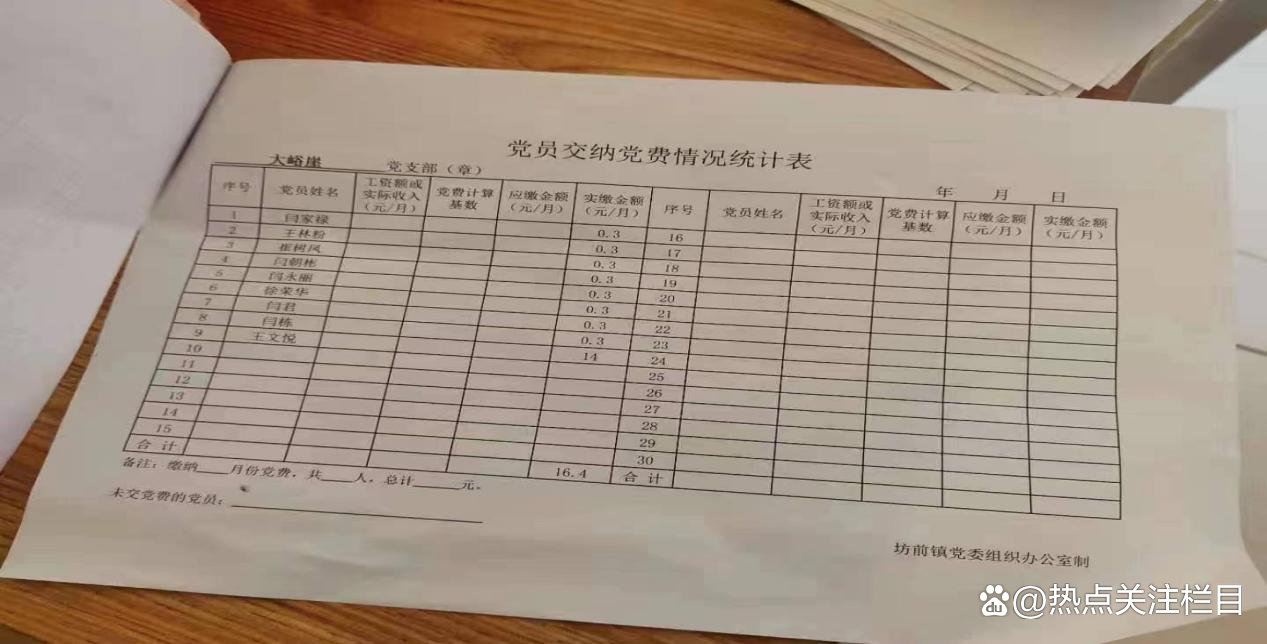 党员交纳党费情况统计表
大峪崖 党支部（章） 年 月 日
序号 党员姓名 工资额或实际收入（元/月） 党费计算基数 应缴金额（元/月） 实缴金额（元/月） 序号 党员姓名 工资额或实际收入（元/月） 党费计算基数 应缴金额（元/月） 实缴金额（元/月）
1 闫家禄 0.3 16
2 王林粉 0.3 17
3 崔树凤 0.3 18
4 闫朝彬 0.3 19
5 闫永丽 0.3 20
6 徐荣华 0.3 21
7 闫君 0.3 22
8 闫栋 0.3 23
9 王文悦 14 24
10 25
11 26
12 27
13 28
14 29
15 30
合计 16.4 合计
备注：缴纳____月份党费，共____人，总计____元。
未交党费的党员：
坊前镇党委组织办公室制
@热点关注栏目